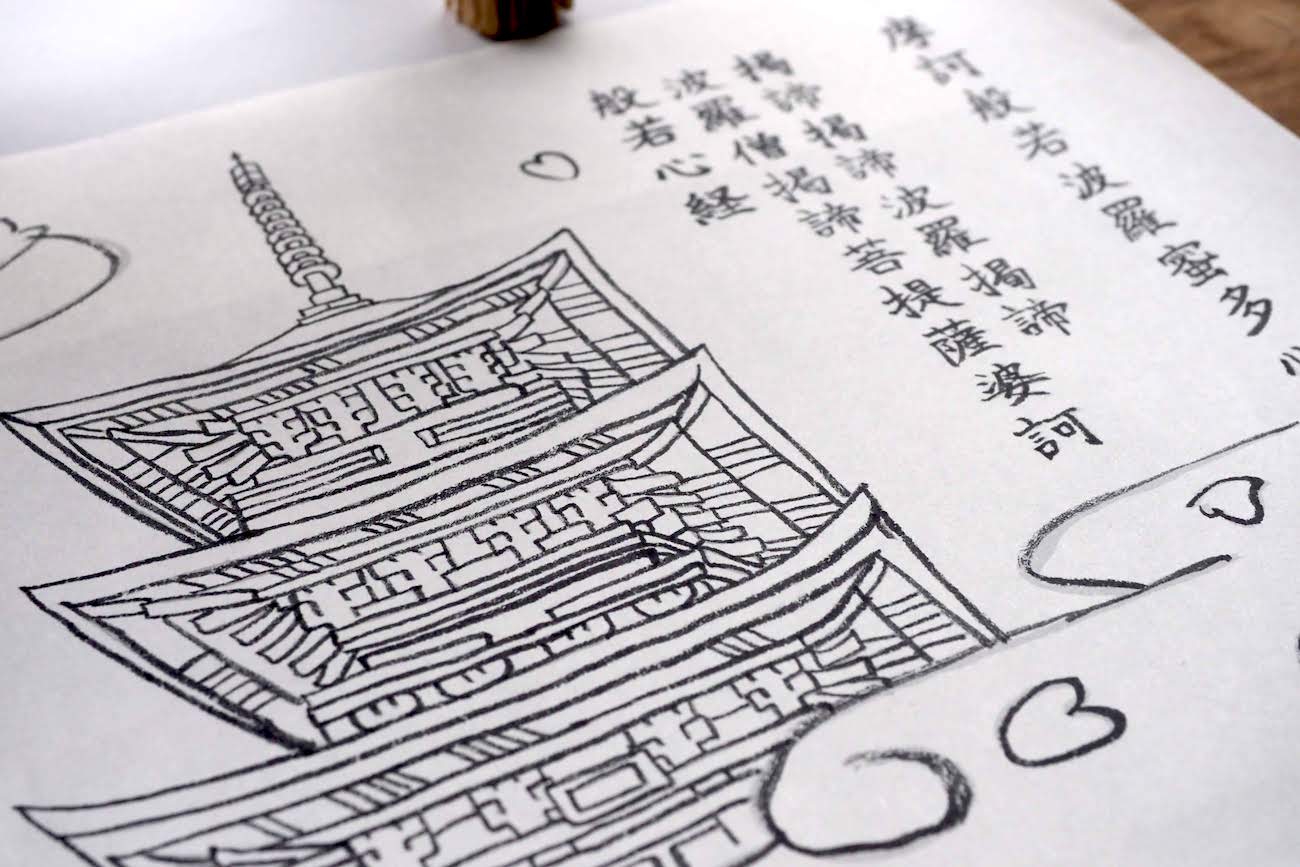 摩訶般若波羅蜜多
掲諦掲諦波羅掲諦
波羅僧掲諦菩提薩婆訶
般若心経